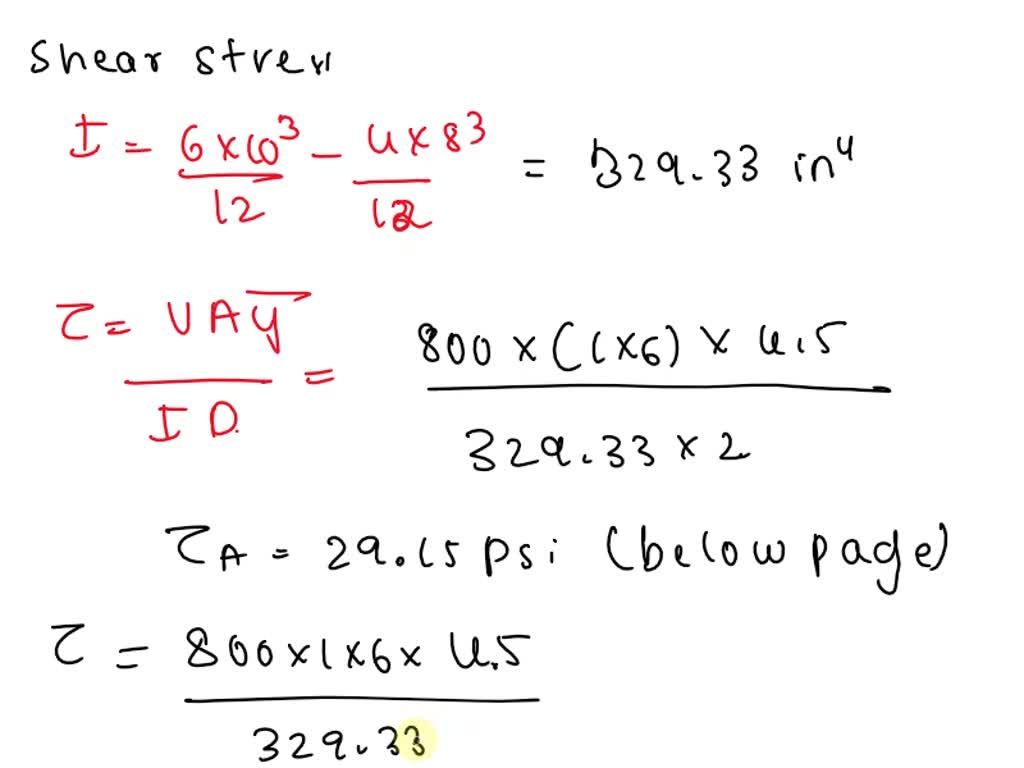 Shear stress
I = 6×10³/12 − 4×8³/12 = 329.33 in⁴
τ = VAȳ/ID = 800×(1×6)×4.5/329.33×2
τA = 29.15 psi (below page)
τ = 800×1×6×4.5/329.33